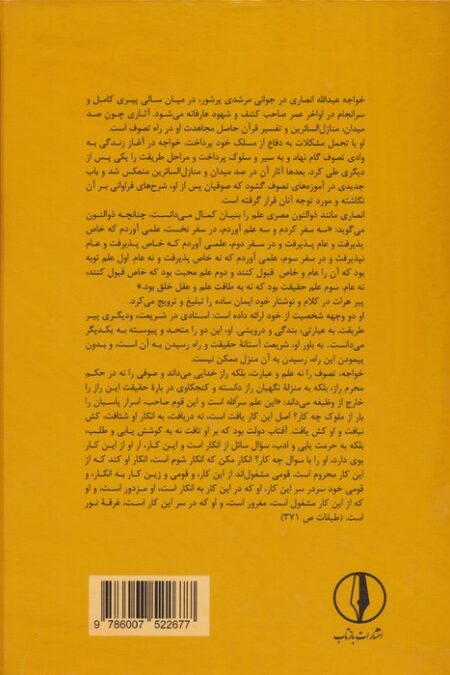 خواجه عبدالله انصاری در جوانی مرشدی پرشور، در میان سالی پیری کامل و
سرانجام در اواخر عمر صاحب کشف و شهود عارفانه می‌شود. آثاری چون صد
میدان، منازل‌السائرین و تفسیر قرآن حاصل مجاهدت او در راه تصوف است.
او با تحمل مشکلات به دفاع از مسلک خود پرداخت. خواجه در آغاز زندگی به
وادی تصوف گام نهاد و به سیر و سلوک پرداخت و مراحل طریقت را یکی پس از
دیگری طی کرد. بعدها آثار آن در صد میدان و منازل‌السائرین منعکس شد و باب
جدیدی در آموزه‌های تصوف گشود که صوفیان پس از او، شرح‌های فراوانی بر آن
نگاشته و مورد توجه آنان قرار گرفته است.
انصاری مانند ذوالنون مصری علم را بنیان کمال می‌دانست، چنانچه ذوالنون
می‌گوید: «سه سفر کردم و سه علم آوردم، در سفر نخست، علمی آوردم که خاص
پذیرفت و عام پذیرفت و در سفر دوم، علمی آوردم که خاص پذیرفت و عام
نپذیرفت و در سفر سوم، علمی آوردم که نه خاص پذیرفت و نه عام. اول علم توبه
بود که آن را عام و خاص قبول کنند و دوم علم محبت بود که خاص قبول کنند،
نه عام. سوم علم حقیقت بود که نه به طاقت علم و عقل خلق بود.»
پیر هرات در کلام و نوشتار خود ایمان ساده را تبلیغ و ترویج می‌کرد.
او دو وجهه شخصیت از خود ارائه داده است: استادی در شریعت، ودیگری پیر
طریقت. به عبارتی، بندگی و درویشی. او، این دو را متحد و پیوسته به یکدیگر
می‌دانست. به باور او، شریعت آستانهٔ حقیقت و راه رسیدن به آن است، و بدون
پیمودن این راه، رسیدن به آن منزل ممکن نیست.
خواجه، تصوف را نه علم و عبارت، بلکه راز خدایی می‌داند و صوفی را نه در حکم
محرم راز، بلکه به منزلهٔ نگهبان راز دانسته و کنجکاوی در بارهٔ حقیقت این راز را
خارج از وظیفه می‌داند: «این علم سرالله است و این قوم صاحب، اسرار پاسبان را
باز از ملوک چه کار؟ اصل این کار یافت است، نه دریافت، به انکار او شتافت، کش
نیافت و او کش یافت. آفتاب دولت بود که بر او تافت نه به کوشش یابی و طلب،
بلکه به حرمت یابی و ادب، سؤال سائل از انکار است و این کار، ار او از این کار
بوی دارد، او را با سوال چه کار؟ انکار مکن که انکار شوم است، انکار او کند که از
این کار محروم است. قومی مشغول‌اند از این کار، و قومی و زین کار به انکار، و
قومی خود سردر سر این کار، او که در این کار به انکار است، او مزدور است، و او
که از این کار مشغول است، مغرور است، و او که در سر این کار است، غرقهٔ نور
است. (طبقات ص ۳۷۱)
9 786007 522677
انتشارات بازتاب